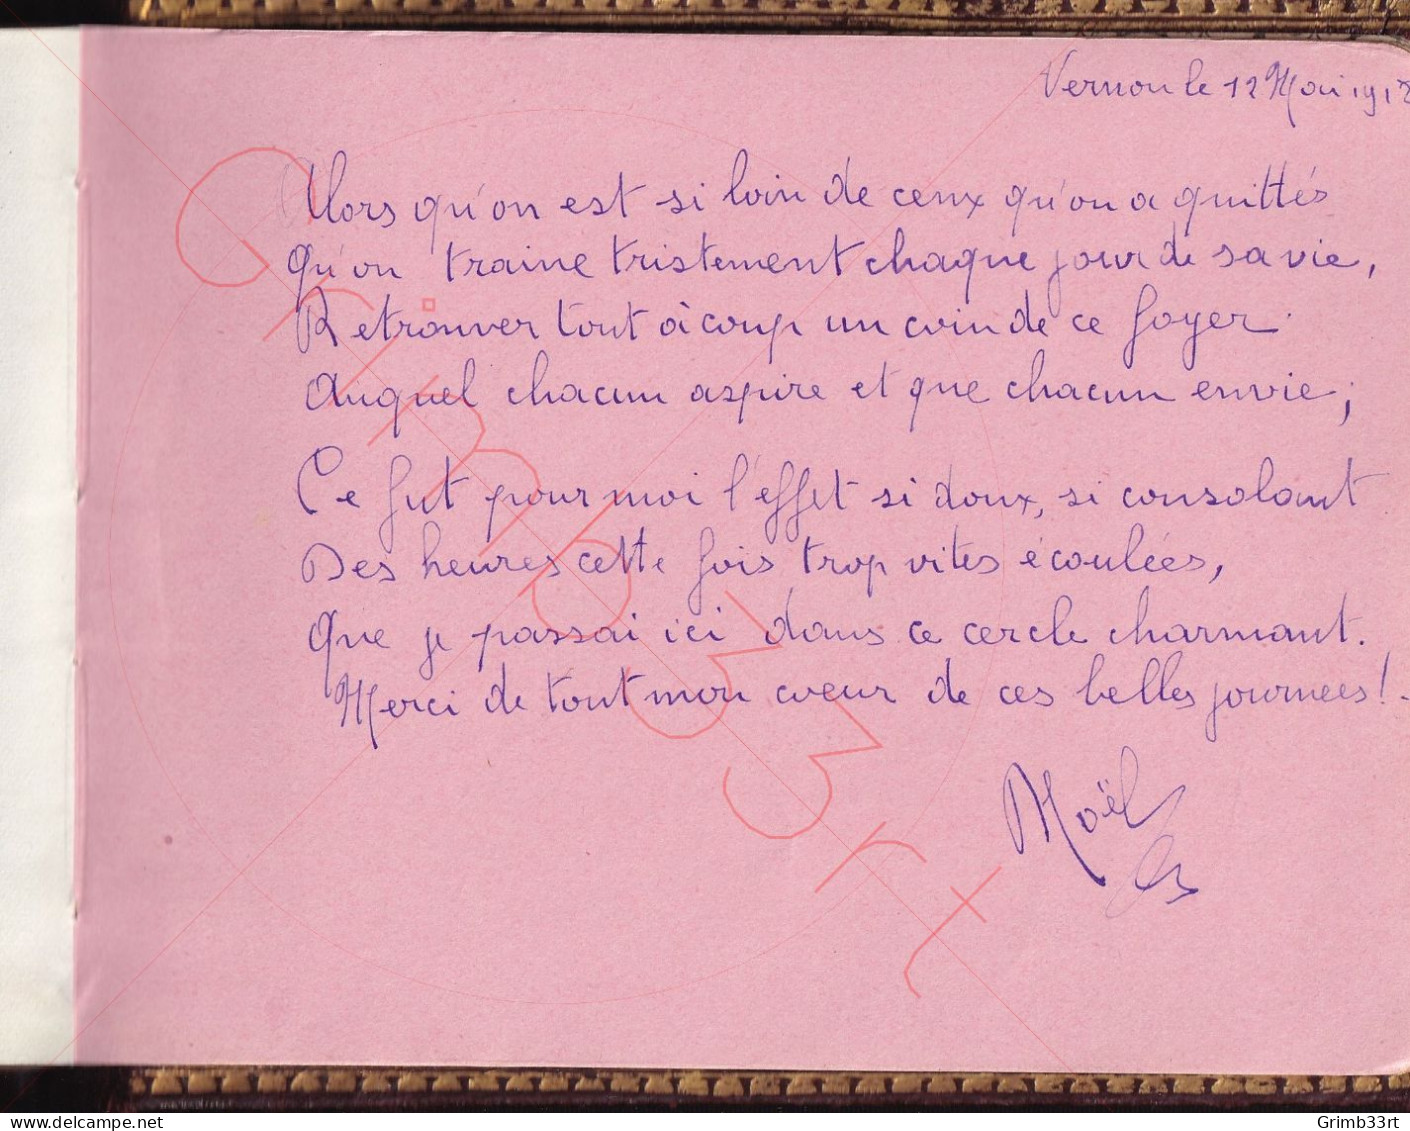 Vernon le 12 Mai 1918
Alors qu'on est si loin de ceux qu'on a quittés
Qu'on traine tristement chaque jour de sa vie,
Retrouver tout à coup un coin de ce foyer
Auquel chacun aspire et que chacun envie;
Ce fut pour moi l'effet si doux, si consolant
Des heures cette fois trop vites écoulées,
Que je passai ici dans ce cercle charmant.
Merci de tout mon cœur de ces belles journées!.
Grimb33rt
www.delcampe.net
Grimb33rt